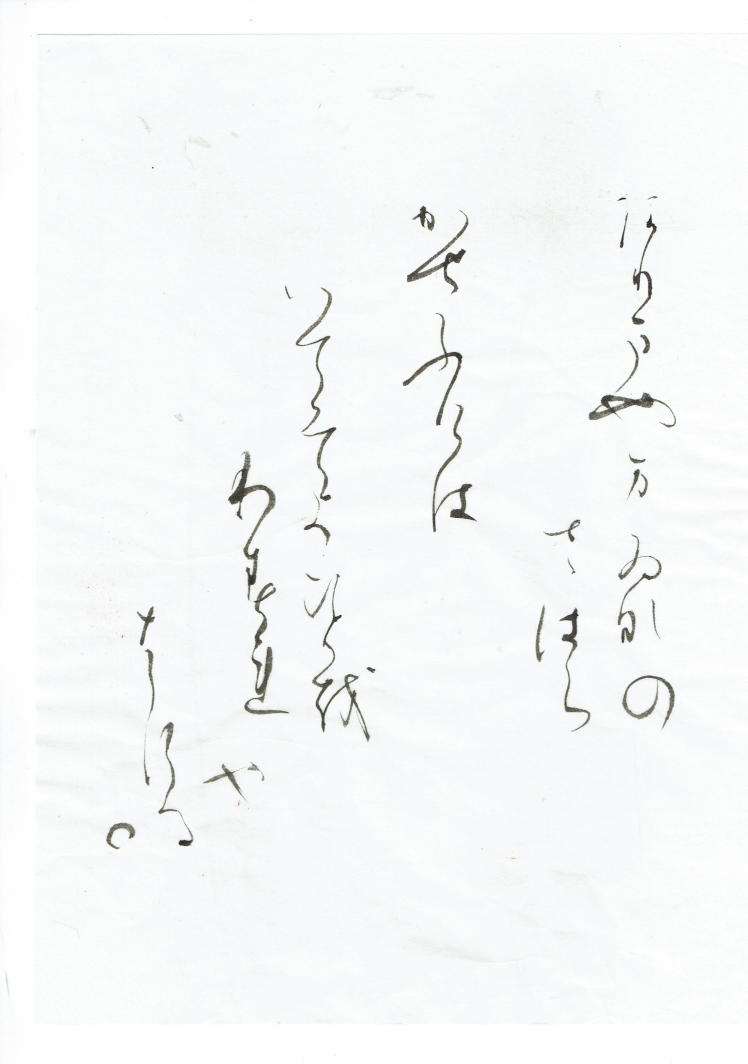 ありまやまゐなの
さゝはら
かせふけは
いてそよひとを
わすれや